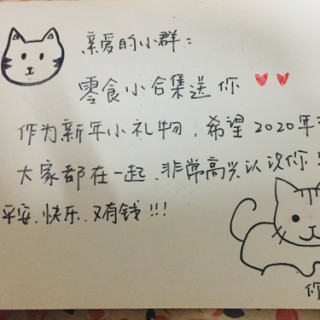 亲爱的小群：
零食小合集送你
作为新年小礼物，希望2020年
大家都在一起，非常高兴认识你！
平安、快乐、又有钱！！！